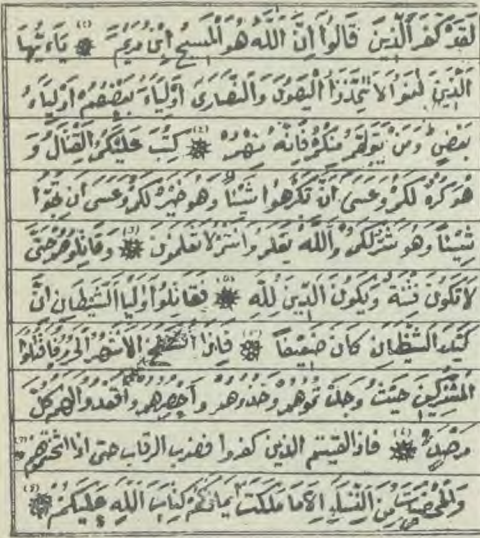 لَقَدْ كَفَرَ الَّذِينَ قَالُوا إِنَّ اللَّهَ هُوَ الْمَسِيحُ ابْنُ مَرْيَمَ ۞ يَاءَيُّهَا
الَّذِينَ ءَامَنُوا لَا تَتَّخِذُوا الْيَهُودَ وَالنَّصَارَى أَوْلِيَاءَ بَعْضُهُمْ أَوْلِيَاءُ
بَعْضٍ وَمَنْ يَتَوَلَّهُمْ مِنْكُمْ فَإِنَّهُ مِنْهُمْ ۞ كُتِبَ عَلَيْكُمُ الْقِتَالُ وَ
هُوَ كُرْهٌ لَكُمْ وَعَسَى أَنْ تَكْرَهُوا شَيْئًا وَهُوَ خَيْرٌ لَكُمْ وَعَسَى أَنْ تُحِبُّوا
شَيْئًا وَهُوَ شَرٌّ لَكُمْ وَاللَّهُ يَعْلَمُ وَأَنْتُمْ لَا تَعْلَمُونَ ۞ وَقَاتِلُوهُمْ حَتَّى
لَا تَكُونَ فِتْنَةٌ وَيَكُونَ الدِّينُ لِلَّهِ ۞ فَقَاتِلُوا أَوْلِيَاءَ الشَّيْطَانِ إِنَّ
كَيْدَ الشَّيْطَانِ كَانَ ضَعِيفًا ۞ فَإِذَا انْسَلَخَ الْأَشْهُرُ الْحُرُمُ فَاقْتُلُوا
الْمُشْرِكِينَ حَيْثُ وَجَدْتُمُوهُمْ وَخُذُوهُمْ وَاحْصُرُوهُمْ وَاقْعُدُوا لَهُمْ كُلَّ
مَرْصَدٍ ۞ فاذا لقيتم الذين كفروا فضرب الرقاب حتى اذا اثخنتموهم
وَالْمُحْصَنَاتُ مِنَ النِّسَاءِ إِلَّا مَا مَلَكَتْ أَيْمَانُكُمْ كِتَابَ اللَّهِ عَلَيْكُمْ ۞